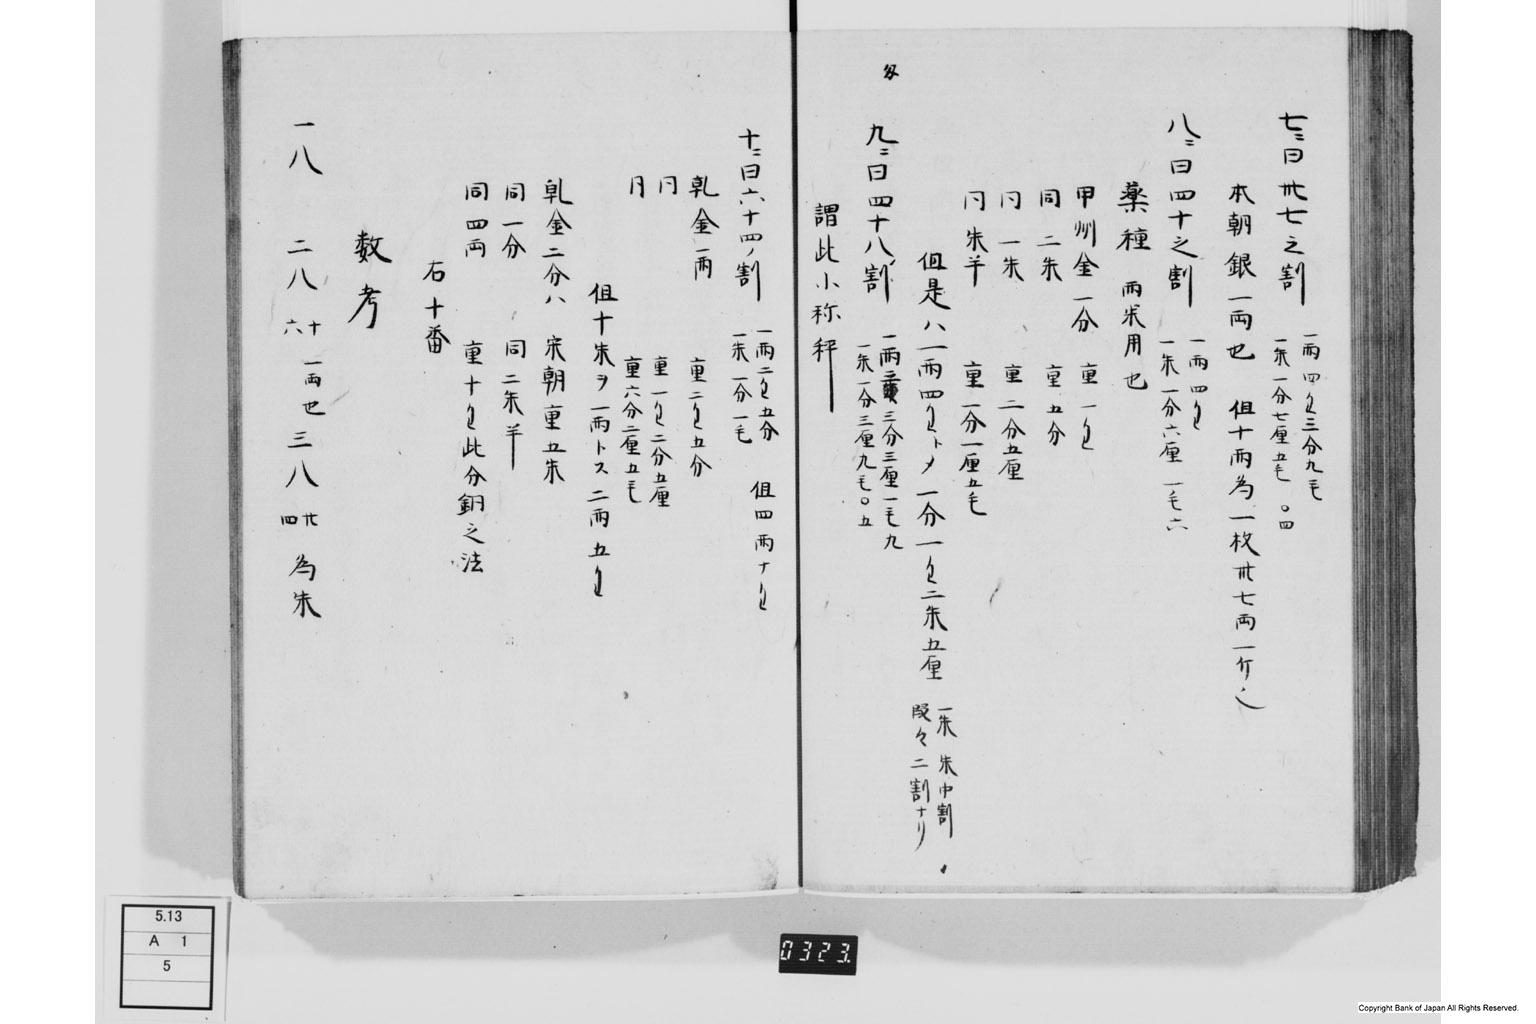 七ニ曰卅七之割 一両四匁三分九毛
一朱一分七厘五毛〇四
本朝銀一両也 但十両為一枚卅七両一斤也
八ニ曰四十之割 一両四匁
一朱一分六厘一毛六
薬種 両朱用也
甲州金一分 重一匁
同二朱 重五分
同一朱 重二分五厘
同朱半 重一分一厘五毛
但是ハ一両四匁トメ一分一匁二朱五厘 一朱 朱中割
段々二割ナリ
匁
九ニ曰四十八割 一両 三分三厘一毛九
一朱一分三厘九毛〇五
謂此小称秤
十ニ曰六十四ノ割 一両二匁五分 但四両十匁
一朱一分一毛
乹金一両 重二匁五分
同 重一匁二分五厘
同 重六分二厘五毛
但十朱ヲ一両トス二両五匁
乹金二分ハ 宋朝重五朱
同一分 同二朱半
同四両 重十匁此分銅之法
右十番
数考
一八 二八 十六 一両也 三八 廿四 為朱
5.13
A 1
5
0323
Copyright Bank of Japan All Rights Reserved.